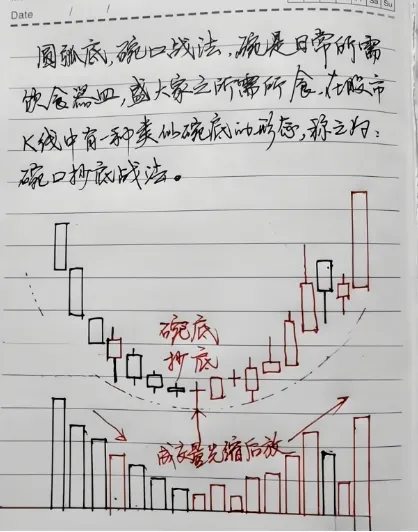 Date
Sa Su
圆弧底,碗口战法,碗是日常所需
饮食器皿,盛大家之所需所食.在股市
K线中有一种类似碗底的形态,称之为:
碗口抄底战法。
碗底
抄底
成交量先缩后放